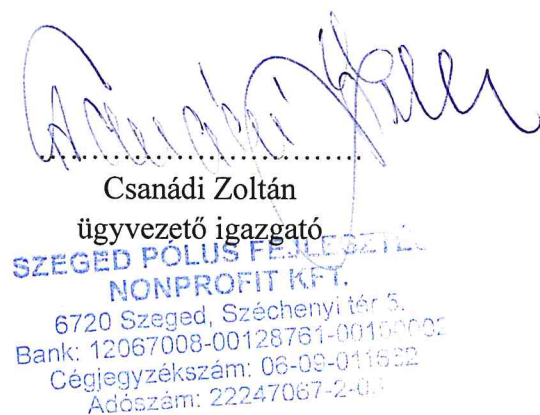 Csanádi Zoltán
ügyvezető igazgató
SZEGED PÓLUS FEJLESZTÉSI
NONPROFIT KFT.
6720 Szeged, Széchenyi tér 5.
Bank: 12067008-00128761-00100002
Cégjegyzékszám: 06-09-011622
Adószám: 22247067-2-0